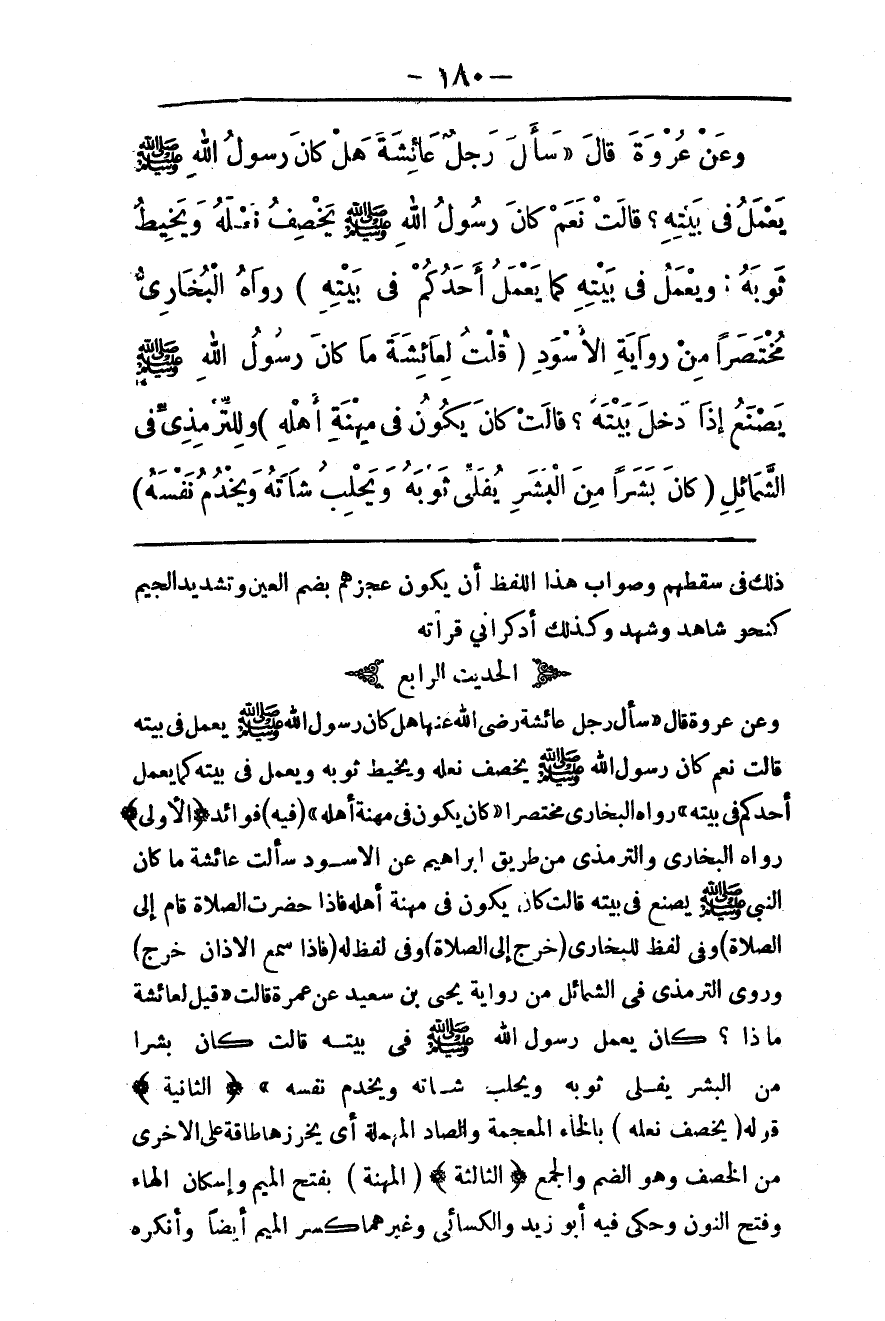 - ١٨٠ -
وعَنْ عُرْوَةَ قالَ «سَأَلَ رَجلٌ عَائِشَةَ هَلْ كانَ رسولُ اللهِ ﷺ
يَعْمَلُ فى بَيْتِهِ؟ قالَتْ نَعَمْ كانَ رسُولُ اللهِ ﷺ يَخْصِفُ نَعْلَهُ وَيَخِيطُ
ثَوبَهُ : ويَعْمَلُ فى بَيْتِهِ كما يَعْمَلُ أَحَدُكُمْ فى بَيْتِهِ ) رواهُ الْبُخَارِىُّ
مُخْتَصَراً مِنْ روايَةِ الأَسْوَدِ ( قُلْتُ لِعَائِشَةَ ما كانَ رسُولُ اللهِ ﷺ
يَصْنَعُ إذَا دَخلَ بَيْتَهُ ؟ قالَتْ كانَ يَكُونُ فى مِهْنَةِ أهْلهِ )ولِلتِّرْمِذِىِّ فى
الشَّمَائِلِ ( كانَ بَشَرَاً مِنَ الْبَشَرِ يُفَلِّى ثَوْبَهُ وَيَحْلِبُ شاتَهُ وَيَخْدُمُ نَفْسَهُ)
ذلك فى سقطهم وصواب هذا اللفظ أن يكون عجزهم بضم العين وتشديد الجيم
كنحو شاهد وشهد وكذلك أدكرانى قرآته
الحديث الرابع
وعن عروة قال «سأل رجل عائشة رضى الله عنها هل كان رسول الله ﷺ يعمل فى بيته
قالت نعم كان رسول الله ﷺ يخصف نعله ويخيط ثوبه ويعمل فى بيته كما يعمل
أحدكم فى بيته» رواه البخارى مختصرا «كان يكون فى مهنة أهله» (فيه) فوائد ﴿الأولى﴾
رواه البخارى والترمذى من طريق ابراهيم عن الاسود سألت عائشة ما كان
النبي ﷺ يصنع فى بيته قالت كان يكون فى مهنة أهله فاذا حضرت الصلاة قام إلى
الصلاة) وفى لفظ للبخارى (خرج إلى الصلاة) وفى لفظ له (فاذا سمع الاذان خرج)
وروى الترمذى فى الشمائل من رواية يحيى بن سعيد عن عمرة قالت «قيل لعائشة
ماذا ؟ كان يعمل رسول الله ﷺ فى بيته قالت كان بشرا
من البشر يفلى ثوبه ويحلب شاته ويخدم نفسه » ﴿ الثانية ﴾
قوله ( يخصف نعله ) بالخاء المعجمة والصاد المهملة أى يخرزها طاقة على الاخرى
من الخصف وهو الضم والجمع ﴿ الثالثة ﴾ ( المهنة ) بفتح الميم وإسكان الهاء
وفتح النون وحكى فيه أبو زيد والكسائى وغيرهما كسر الميم أيضاً وأنكره